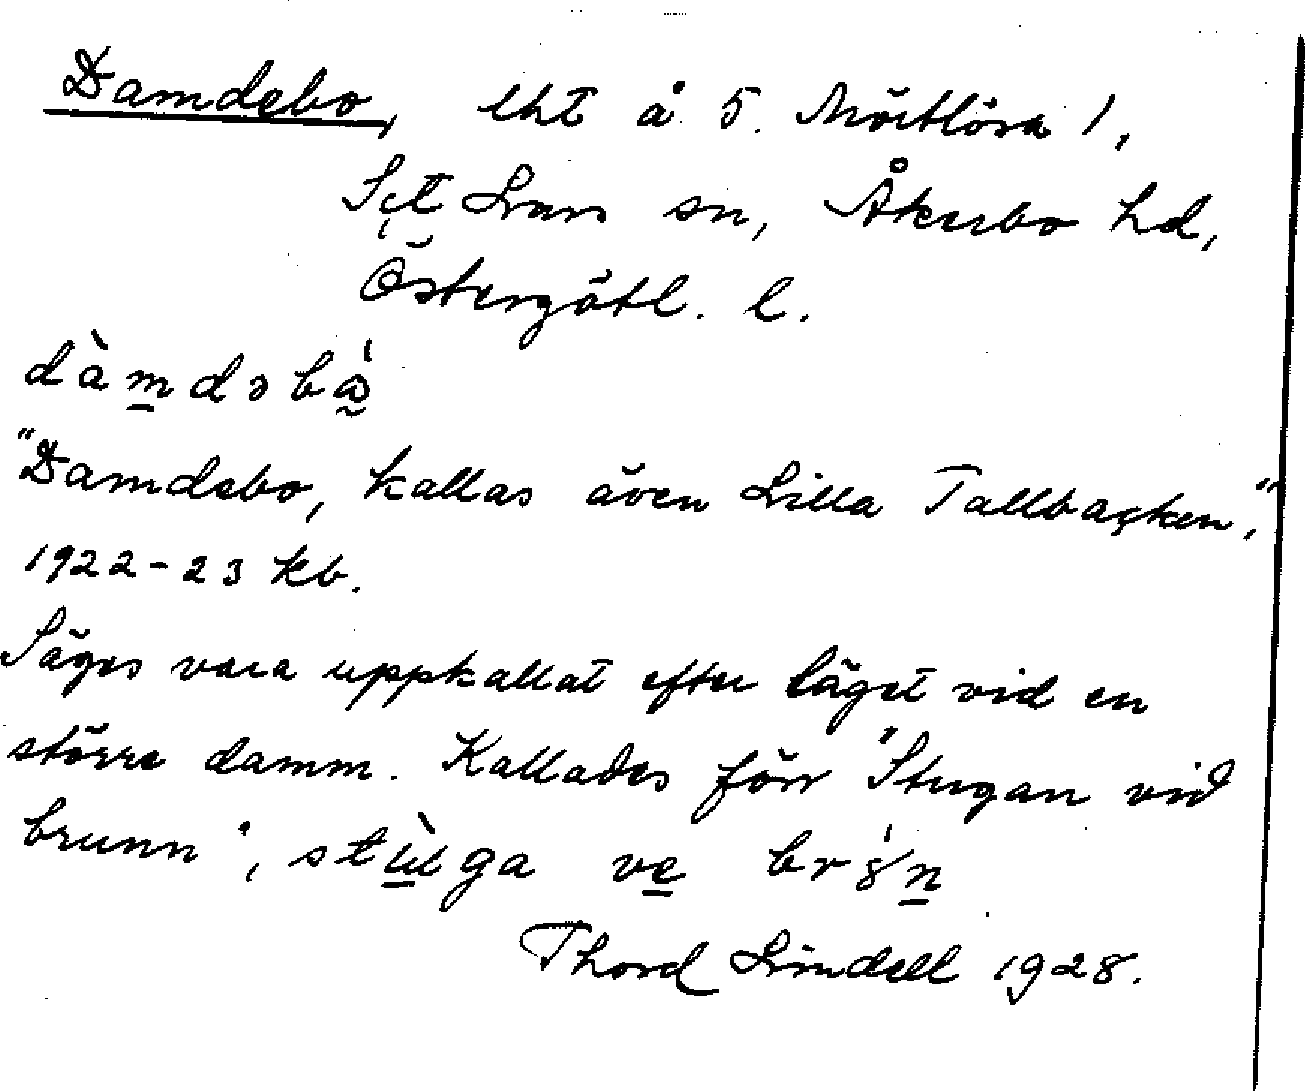 Damdebo, lht å S. Mörtlösa 1,
S:t Lars sn, Åkerbo hd,
Östergötl. l.
dàmdəbó
"Damdebo, kallas även Lilla Tallbacken",
1922-23 kb.
Säges vara uppkallat efter läget vid en
större damm. Kallades förr "Stugan vid
brunn", stùga ve brýn
Thord Lindell 1928.